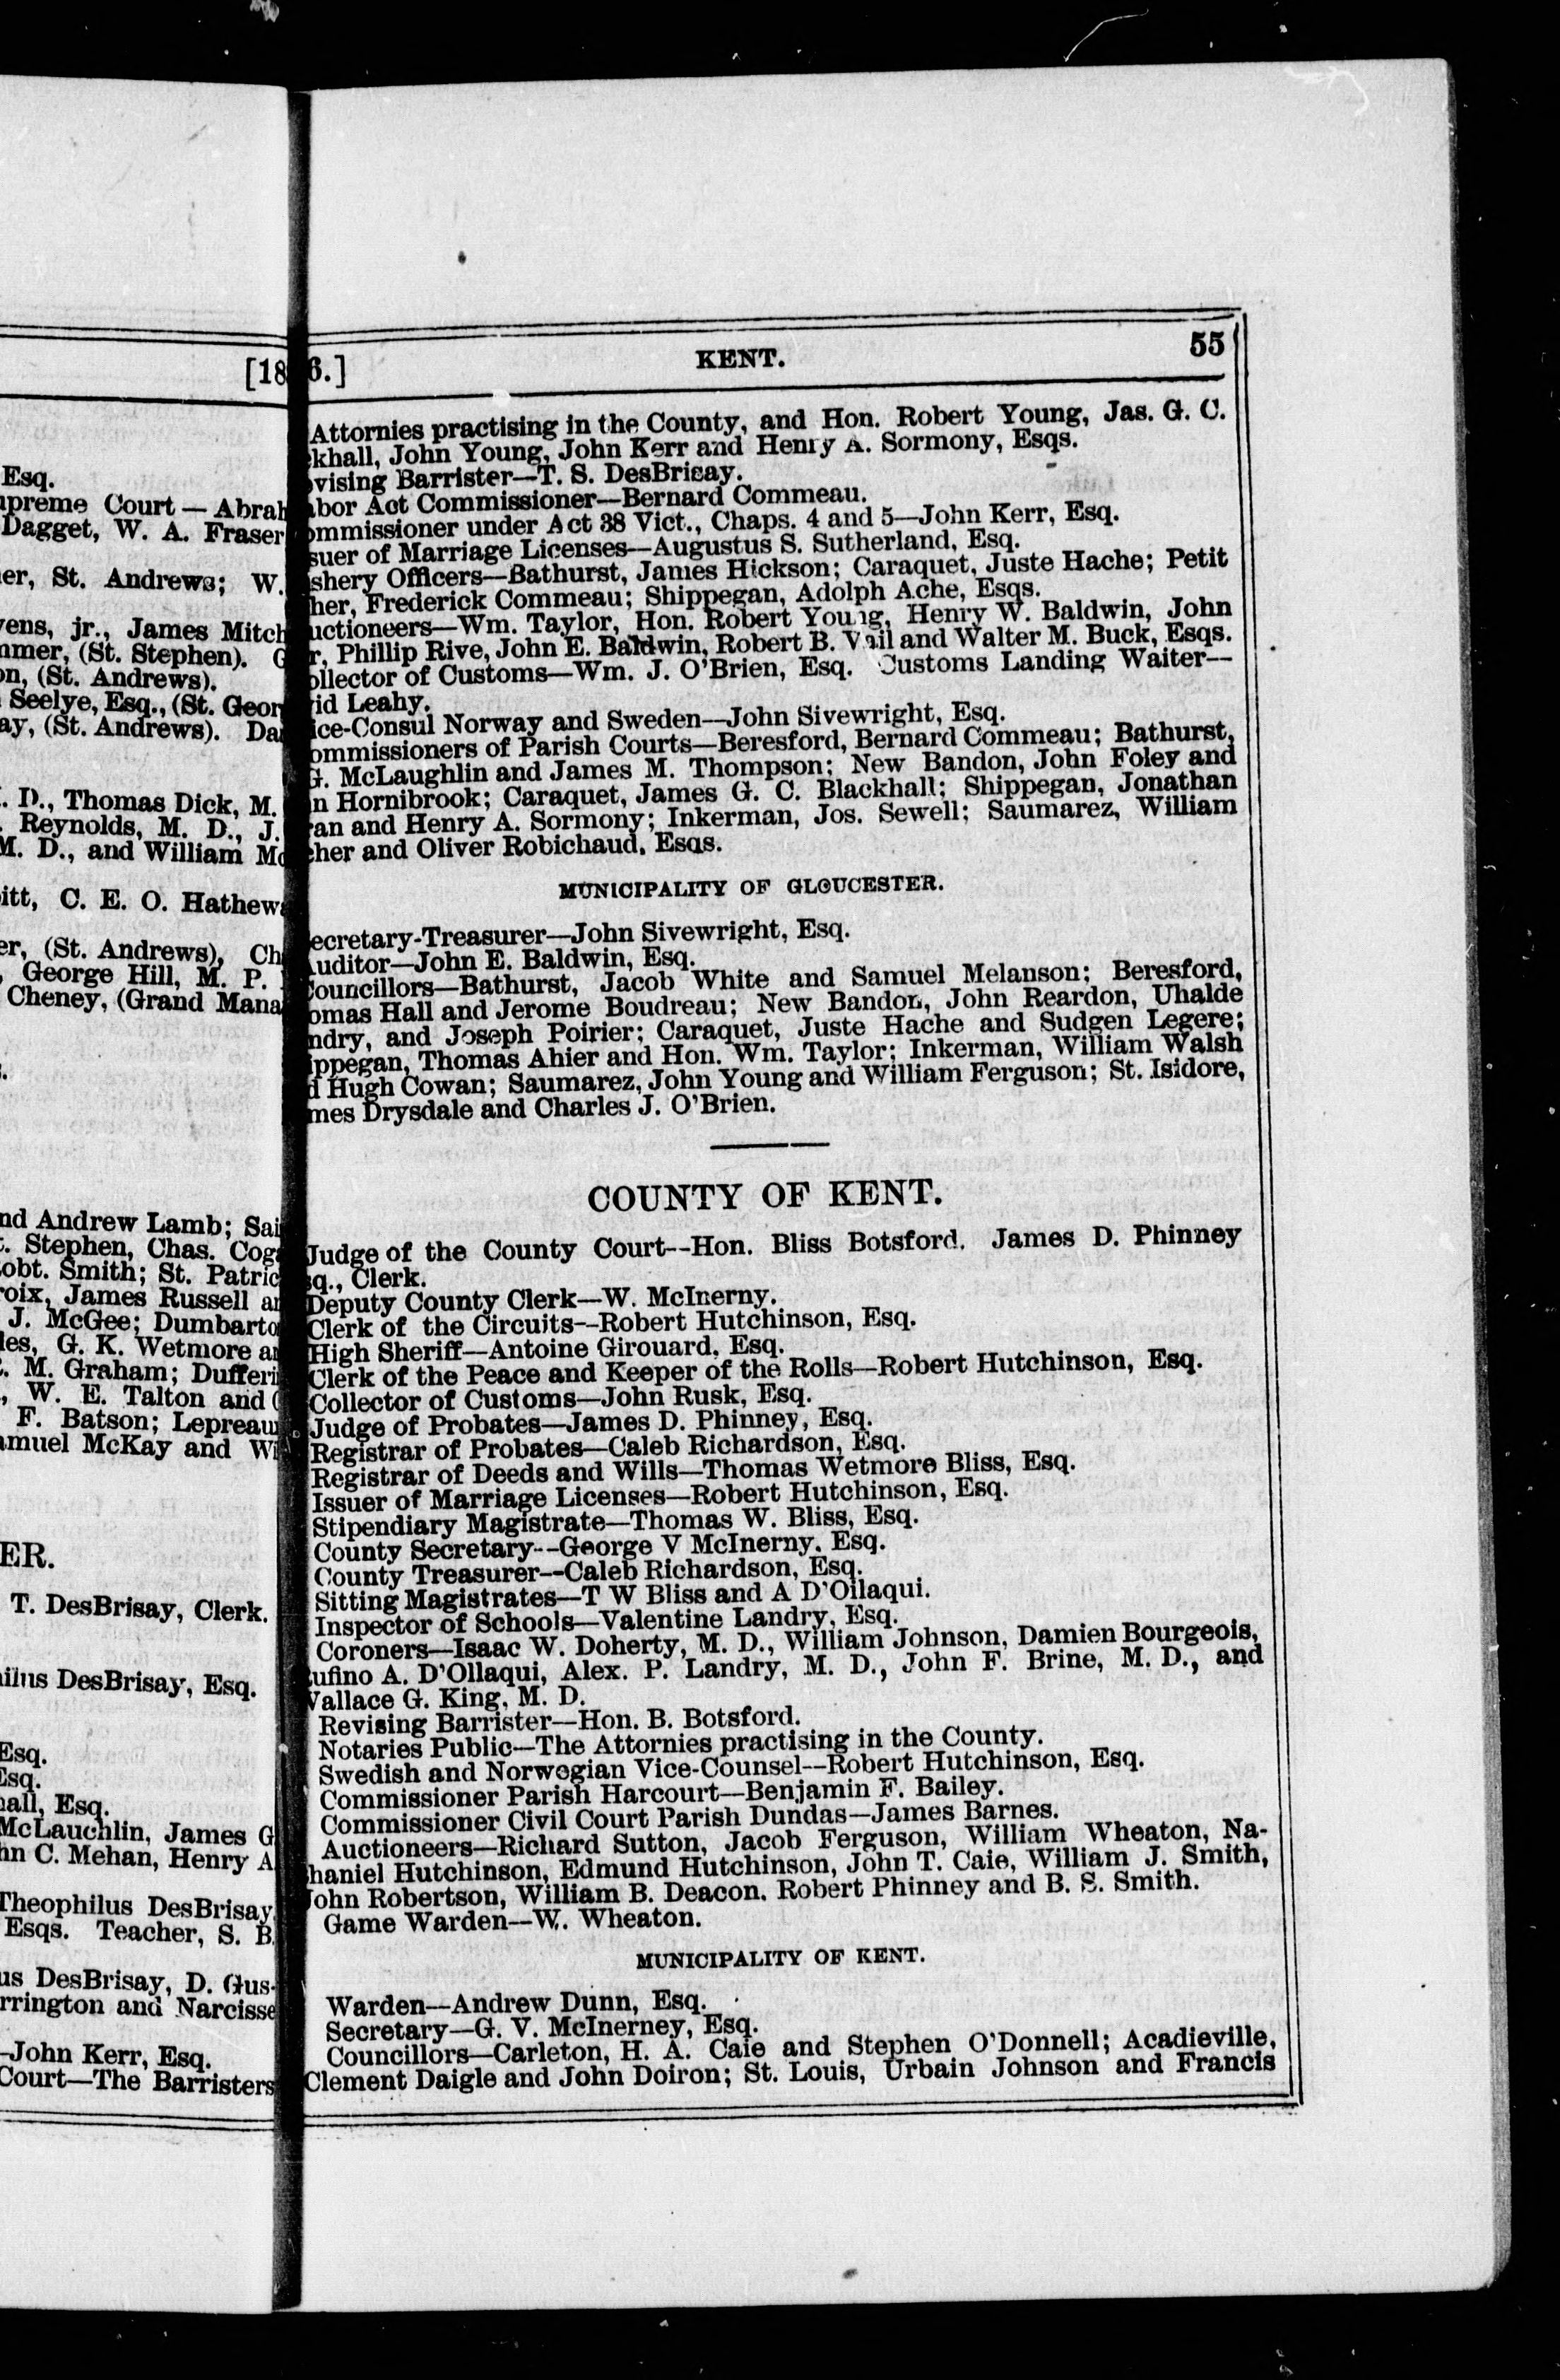 [18
Esq.
upreme Court — Abrah
Dagget, W. A. Fraser
er, St. Andrews; W.
vens, jr., James Mitch
mmer, (St. Stephen). G
on, (St. Andrews).
Seelye, Esq., (St. Geor
ay, (St. Andrews). Da
. D., Thomas Dick, M.
. Reynolds, M. D., J.
M. D., and William Mc
itt, C. E. O. Hathew
er, (St. Andrews), Ch
, George Hill, M. P.
Cheney, (Grand Mana
nd Andrew Lamb; Sai
t. Stephen, Chas. Cog
obt. Smith; St. Patric
roix, James Russell an
J. McGee; Dumbarto
les, G. K. Wetmore an
C. M. Graham; Dufferi
, W. E. Talton and
F. Batson; Lepreau
amuel McKay and Wi
ER.
T. DesBrisay, Clerk.
ilus DesBrisay, Esq.
Esq.
Esq.
hall, Esq.
McLauchlin, James G
hn C. Mehan, Henry A
Theophilus DesBrisay
Esqs. Teacher, S. B.
us DesBrisay, D. Gus-
rrington and Narcisse
-John Kerr, Esq.
Court—The Barristers
6.] KENT. 55
Attornies practising in the County, and Hon. Robert Young, Jas. G. C.
ckhall, John Young, John Kerr and Henry A. Sormony, Esqs.
vising Barrister—T. S. DesBrisay.
abor Act Commissioner—Bernard Commeau.
ommissioner under Act 38 Vict., Chaps. 4 and 5—John Kerr, Esq.
suer of Marriage Licenses—Augustus S. Sutherland, Esq.
shery Officers—Bathurst, James Hickson; Caraquet, Juste Hache; Petit
her, Frederick Commeau; Shippegan, Adolph Ache, Esqs.
uctioneers—Wm. Taylor, Hon. Robert Young, Henry W. Baldwin, John
r, Phillip Rive, John E. Baldwin, Robert B. Vail and Walter M. Buck, Esqs.
ollector of Customs—Wm. J. O'Brien, Esq. Customs Landing Waiter—
vid Leahy.
ice-Consul Norway and Sweden—John Sivewright, Esq.
ommissioners of Parish Courts—Beresford, Bernard Commeau; Bathurst,
G. McLaughlin and James M. Thompson; New Bandon, John Foley and
n Hornibrook; Caraquet, James G. C. Blackhall; Shippegan, Jonathan
ran and Henry A. Sormony; Inkerman, Jos. Sewell; Saumarez, William
cher and Oliver Robichaud, Esqs.
MUNICIPALITY OF GLOUCESTER.
ecretary-Treasurer—John Sivewright, Esq.
Auditor—John E. Baldwin, Esq.
Councillors—Bathurst, Jacob White and Samuel Melanson; Beresford,
omas Hall and Jerome Boudreau; New Bandon, John Reardon, Uhalde
ndry, and Joseph Poirier; Caraquet, Juste Hache and Sudgen Legere;
ippegan, Thomas Ahier and Hon. Wm. Taylor; Inkerman, William Walsh
d Hugh Cowan; Saumarez, John Young and William Ferguson; St. Isidore,
mes Drysdale and Charles J. O'Brien.
COUNTY OF KENT.
Judge of the County Court--Hon. Bliss Botsford. James D. Phinney
sq., Clerk.
Deputy County Clerk—W. McInerny.
Clerk of the Circuits--Robert Hutchinson, Esq.
High Sheriff—Antoine Girouard, Esq.
Clerk of the Peace and Keeper of the Rolls—Robert Hutchinson, Esq.
Collector of Customs—John Rusk, Esq.
Judge of Probates—James D. Phinney, Esq.
Registrar of Probates—Caleb Richardson, Esq.
Registrar of Deeds and Wills—Thomas Wetmore Bliss, Esq.
Issuer of Marriage Licenses—Robert Hutchinson, Esq.
Stipendiary Magistrate—Thomas W. Bliss, Esq.
County Secretary--George V McInerny, Esq.
County Treasurer--Caleb Richardson, Esq.
Sitting Magistrates—T W Bliss and A D'Oilaqui.
Inspector of Schools—Valentine Landry, Esq.
Coroners—Isaac W. Doherty, M. D., William Johnson, Damien Bourgeois,
ufino A. D'Ollaqui, Alex. P. Landry, M. D., John F. Brine, M. D., and
Wallace G. King, M. D.
Revising Barrister—Hon. B. Botsford.
Notaries Public—The Attornies practising in the County.
Swedish and Norwegian Vice-Counsel--Robert Hutchinson, Esq.
Commissioner Parish Harcourt—Benjamin F. Bailey.
Commissioner Civil Court Parish Dundas—James Barnes.
Auctioneers—Richard Sutton, Jacob Ferguson, William Wheaton, Na-
haniel Hutchinson, Edmund Hutchinson, John T. Caie, William J. Smith,
John Robertson, William B. Deacon, Robert Phinney and B. S. Smith.
Game Warden--W. Wheaton.
MUNICIPALITY OF KENT.
Warden—Andrew Dunn, Esq.
Secretary—G. V. McInerney, Esq.
Councillors—Carleton, H. A. Caie and Stephen O'Donnell; Acadieville,
Clement Daigle and John Doiron; St. Louis, Urbain Johnson and Francis